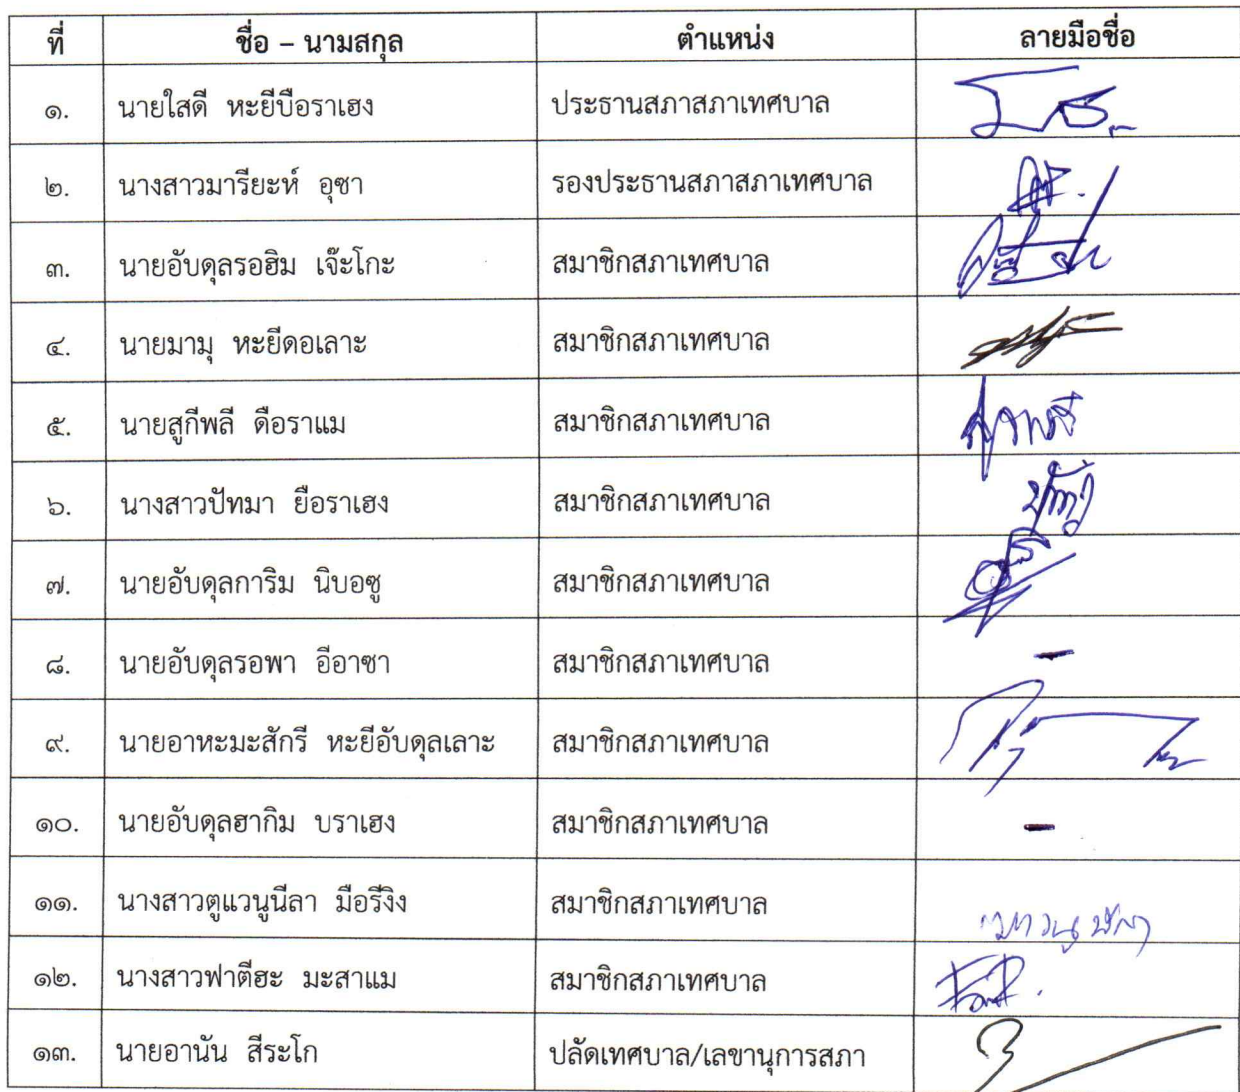 ที่ ชื่อ – นามสกุล ตำแหน่ง ลายมือชื่อ
๑. นายใสดี หะยีบือราเฮง ประธานสภาสภาเทศบาล
๒. นางสาวมารียะห์ อุซา รองประธานสภาสภาเทศบาล
๓. นายอับดุลรอฮิม เจ๊ะโกะ สมาชิกสภาเทศบาล
๔. นายมามุ หะยีดอเลาะ สมาชิกสภาเทศบาล
๕. นายสูกีพลี ดือราแม สมาชิกสภาเทศบาล
๖. นางสาวปัทมา ยือราเฮง สมาชิกสภาเทศบาล
๗. นายอับดุลการิม นิบอซู สมาชิกสภาเทศบาล
๘. นายอับดุลรอพา อีอาซา สมาชิกสภาเทศบาล -
๙. นายอาหะมะสักรี หะยีอับดุลเลาะ สมาชิกสภาเทศบาล
๑๐. นายอับดุลฮากิม บราเฮง สมาชิกสภาเทศบาล -
๑๑. นางสาวตูแวนูนีลา มือรีงิง สมาชิกสภาเทศบาล
๑๒. นางสาวฟาตีฮะ มะสาแม สมาชิกสภาเทศบาล
๑๓. นายอานัน สีระโก ปลัดเทศบาล/เลขานุการสภา